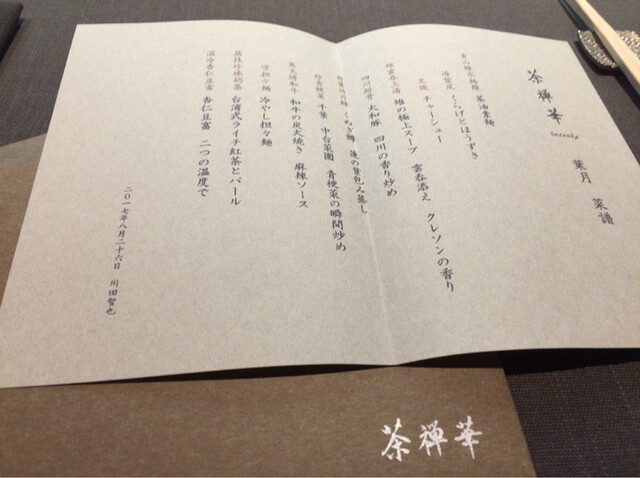 茶禅華
Sazenka
葉月 菜譜
茶油素麺
海蜇皮 くらげとほうずき
叉焼 チャーシュー
雉雲呑上湯 雉の極上スープ 雲呑添え クレソンの香り
四川 大和豚 四川の香り炒め
くぬぎ鱒 蓮の葉包み蒸し
千葉 中台菜園 青梗菜の瞬間炒め
炭火烤和牛 和牛の炭火焼き 麻辣ソース
涼担々麺 冷やし担々麺
荔枝珍珠奶茶 台湾式ライチ紅茶とパール
温冷杏仁豆富 杏仁豆富 二つの温度で
二〇一七年八月二十六日 川田智也
茶禅華